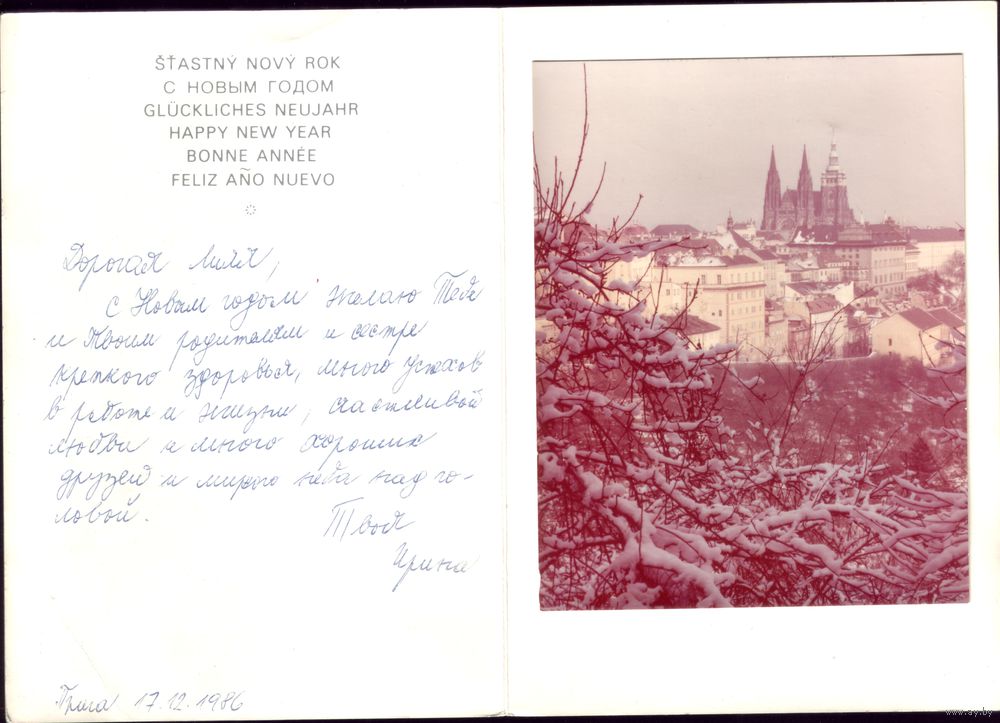 ŠŤASTNÝ NOVÝ ROK
С НОВЫМ ГОДОМ
GLÜCKLICHES NEUJAHR
HAPPY NEW YEAR
BONNE ANNÉE
FELIZ AÑO NUEVO
Дорогая Лиля,
с Новым годом желаю Тебе
и Твоим родителям и сестре
крепкого здоровья, много успехов
в работе и жизни, счастливой
любви и много хороших
друзей и мирого неба над го-
ловой.
Твоя
Ирина
Прага 17.12.1986
www.ay.by